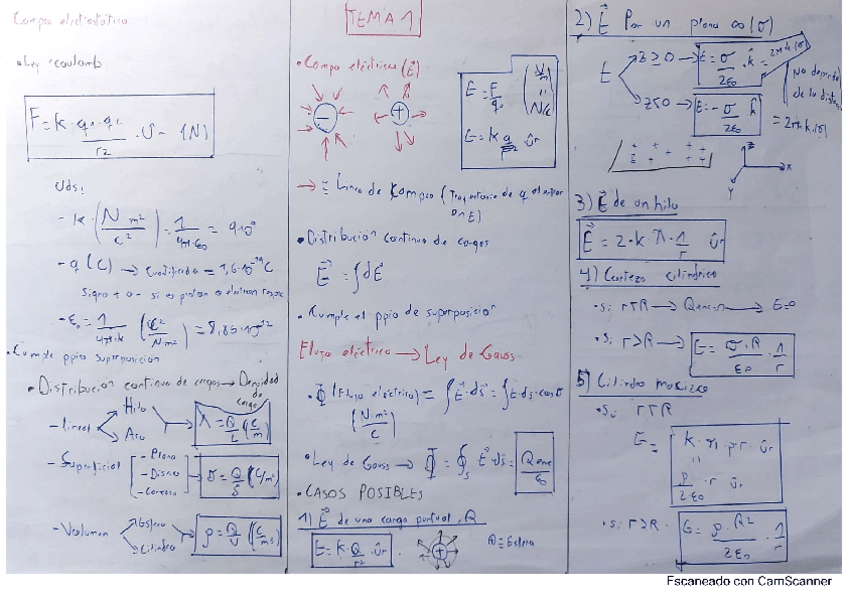 Campo electrostático
• Ley coulomb
F = K · q₁ · q₂ / r² · û - (N)
Uds:
- K · (N m² / C²) = 1 / 4π·ε₀ = 9·10⁹
- q (C) → Cuantificada = 1,6·10⁻¹⁹ C
signo + o - si es proton o electron
- ε₀ = 1 / 4π·k (C² / N m²) = 8,85·10⁻¹²
• Cumple ppio superposicion
• Distribución continua de cargas → Densidad de carga
- Lineal
Hilo
Aro
λ = Q / L (C/m)
- Superficial
- Plano
- Disco
- Corteza
σ = Q / S (C/m²)
- Volumen
Esfera
Cilindro
ρ = Q / V (C/m³)
TEMA 1
• Campo eléctrico (E⃗)
E = F / q
(V/m = N/C)
E = K q / r² ûr
-
+
→ Linea de campo (
• Distribución continua de cargas
E⃗ = ∫dE⃗
• Cumple el ppio de superposicion
Flujo eléctrico → Ley de Gauss
• Φ (Flujo eléctrico) = ∫E⃗·ds⃗ = ∫E·ds·cosθ
(N m² / C)
• Ley de Gauss → Φ = ∮s E⃗·ds⃗ = Qenc / ε₀
• CASOS POSIBLES
1) E⃗ de una carga puntual Q
E = K·Q / r² · ûr
+
2) E⃗ Por un plano ∞ (σ)
E
Z ≥ 0 → E = σ / 2ε₀ · k̂ = 2π·k·|σ|
Z<0 → E = - σ / 2ε₀ k̂ = 2π·k·|σ|
No depende de la distan
Z
X
Y
3) E⃗ de un hilo
E⃗ = 2·k·λ·1/r ûr
4) Corteza cilindrica
• si r<R → Qenc=0 → E=0
• si r>R → E = σ·R / ε₀ · 1/r
5) Cilindro macizo
• si r<R
E = K · 2π·ρ·r · ûr
=
ρ / 2·ε₀ · r ûr
• si r>R
E = ρ·R² / 2ε₀ · 1/r
Escaneado con CamScanner